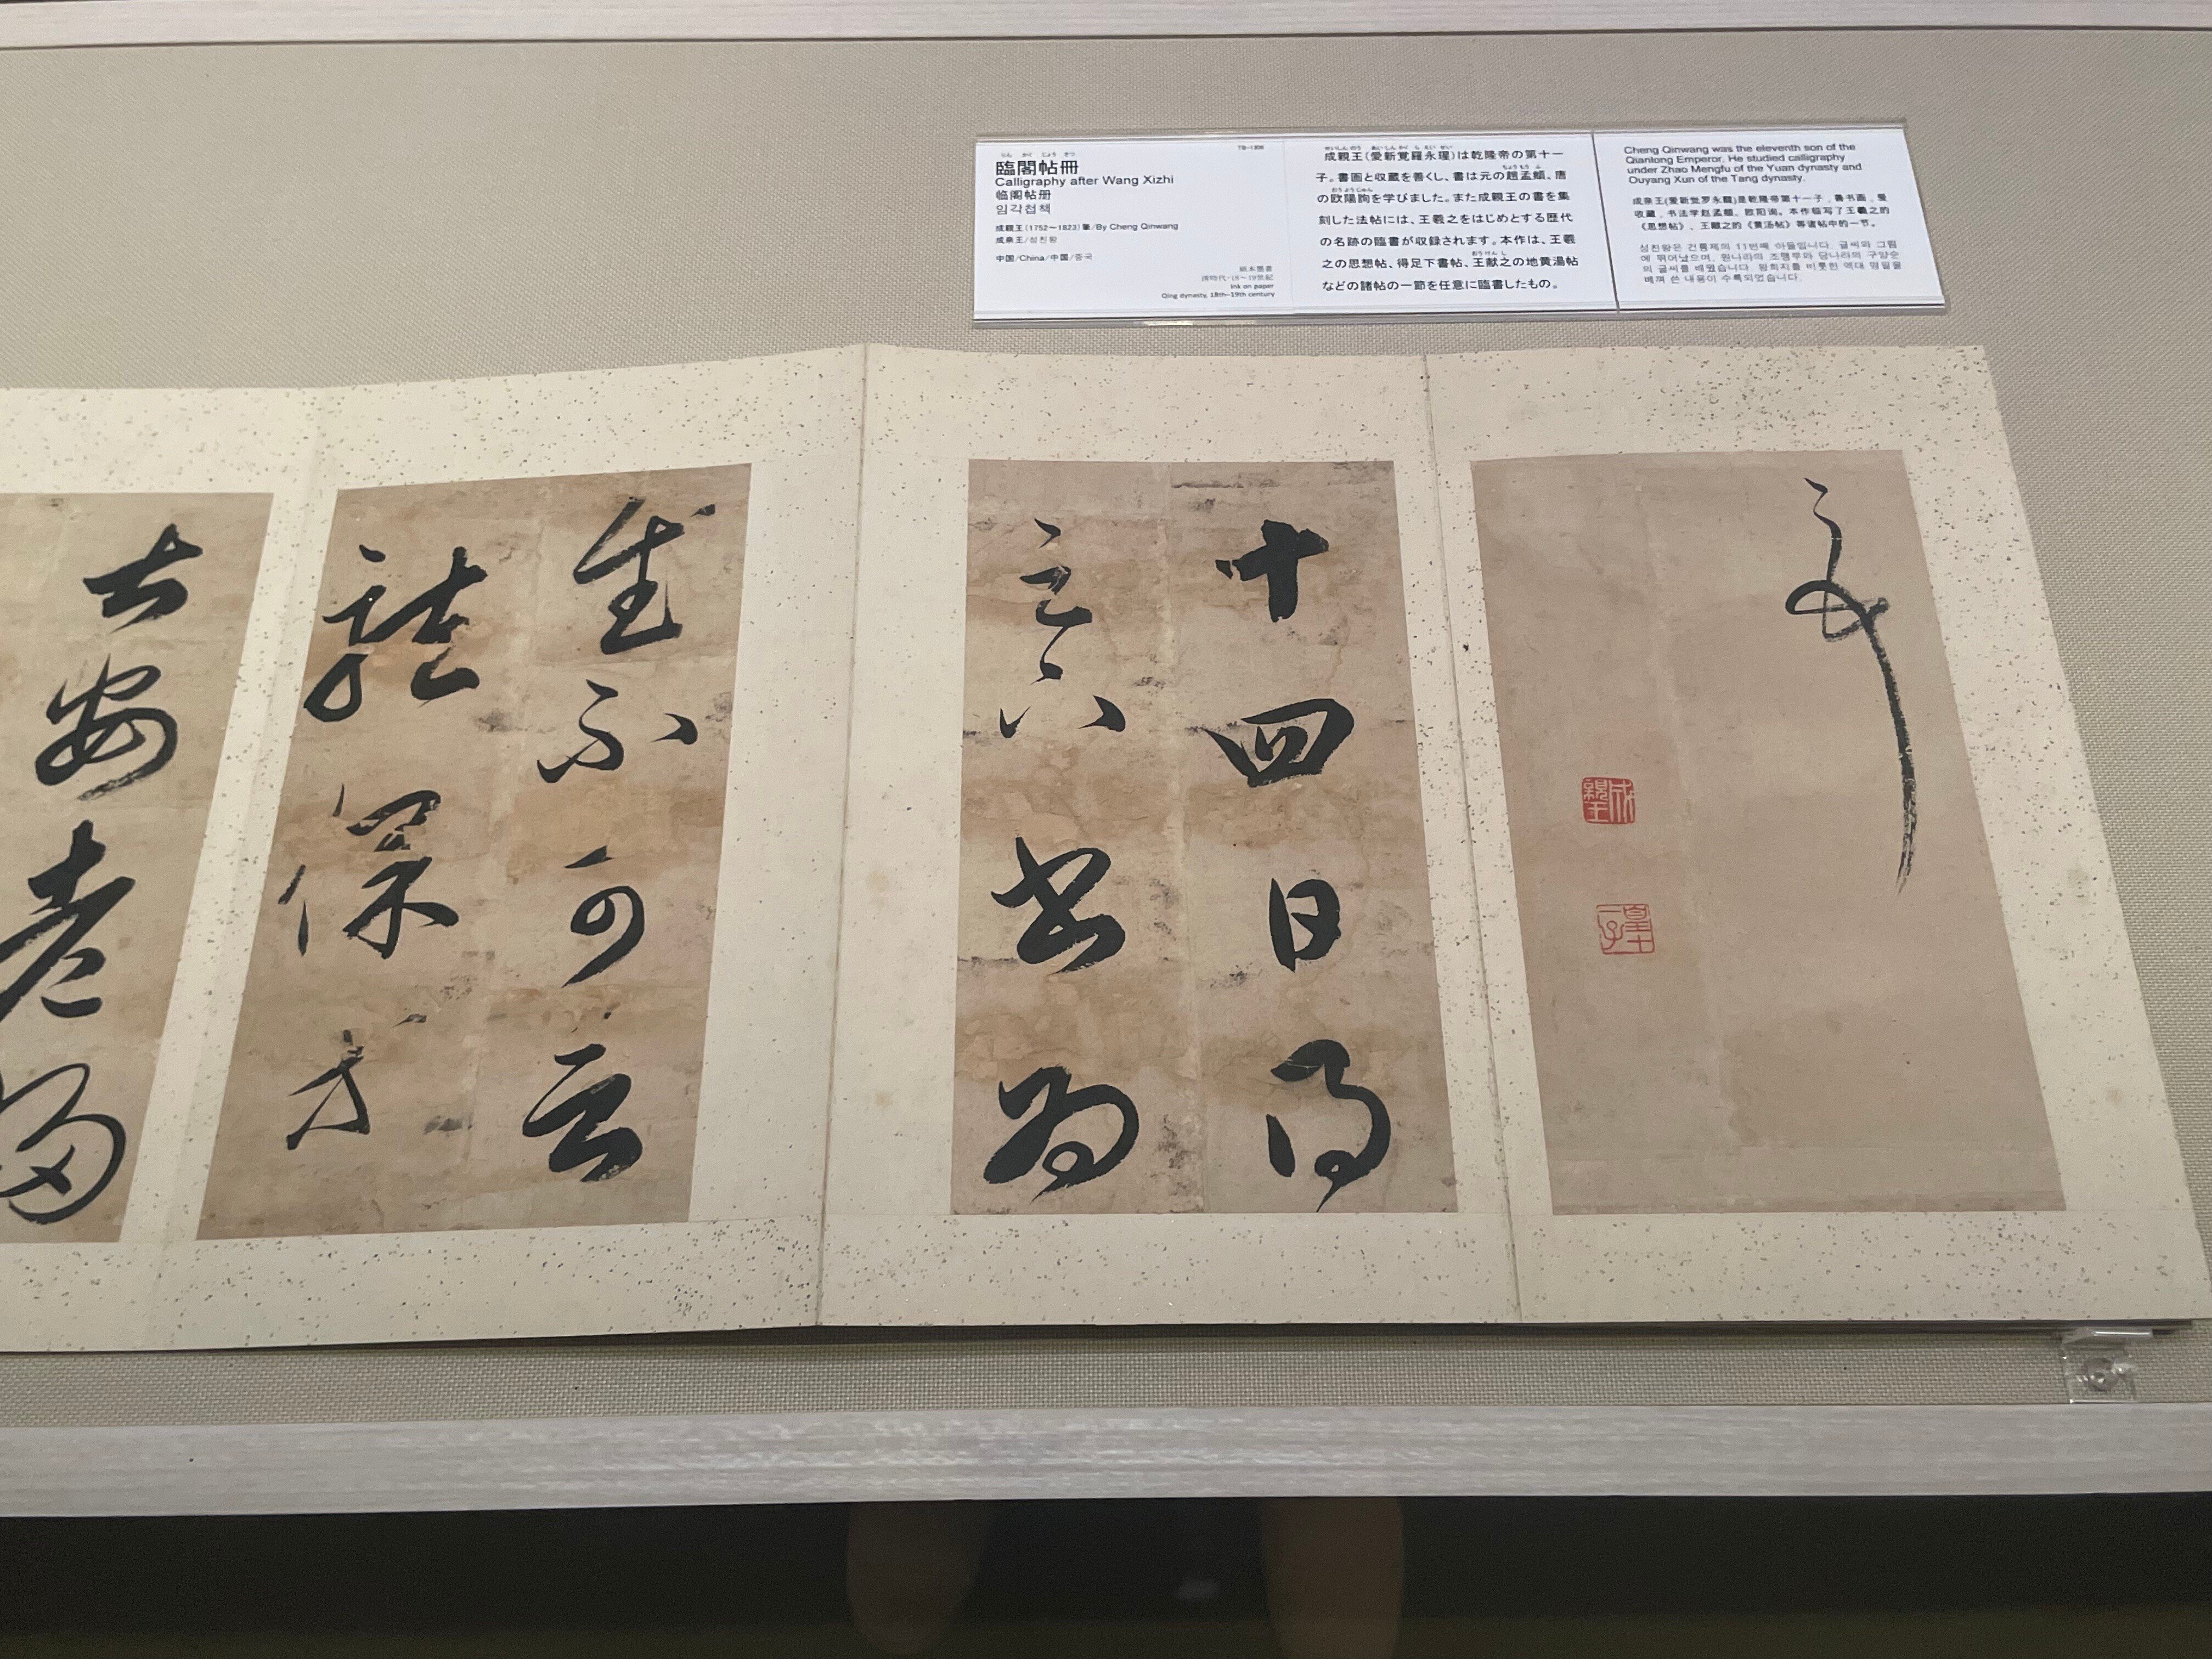 臨閣帖冊
りん かく じょう さつ
Calligraphy after Wang Xizhi
临阁帖册
임각첩책
成親王(1752〜1823)筆/By Cheng Qinwang
成亲王/성친왕
中国/China/中国/중국
紙本墨書
清時代・18〜19世紀
Ink on paper
Qing dynasty, 18th–19th century
成親王(愛新覚羅永瑆)は乾隆帝の第十一
子。書画と収蔵を善くし、書は元の趙孟頫、唐
の欧陽詢を学びました。また成親王の書を集
刻した法帖には、王羲之をはじめとする歴代
の名跡の臨書が収録されます。本作は、王羲
之の思想帖、得足下書帖、王献之の地黄湯帖
などの諸帖の一節を任意に臨書したもの。
Cheng Qinwang was the eleventh son of the
Qianlong Emperor. He studied calligraphy
under Zhao Mengfu of the Yuan dynasty and
Ouyang Xun of the Tang dynasty.
成亲王(爱新觉罗永瑆)是乾隆帝第十一子，善书画，爱
收藏，书法学赵孟頫、欧阳询。本作临写了王羲之的
《思想帖》、王献之的《黄汤帖》等诸帖中的一节。
성친왕은 건륭제의 11번째 아들입니다. 글씨와 그림
에 뛰어났으며, 원나라의 조맹부와 당나라의 구양순
의 글씨를 배웠습니다. 왕희지를 비롯한 역대 명필을
베껴 쓴 내용이 수록되었습니다.
安老
不可言
保
十四日得
書為
成親王
皇十一子